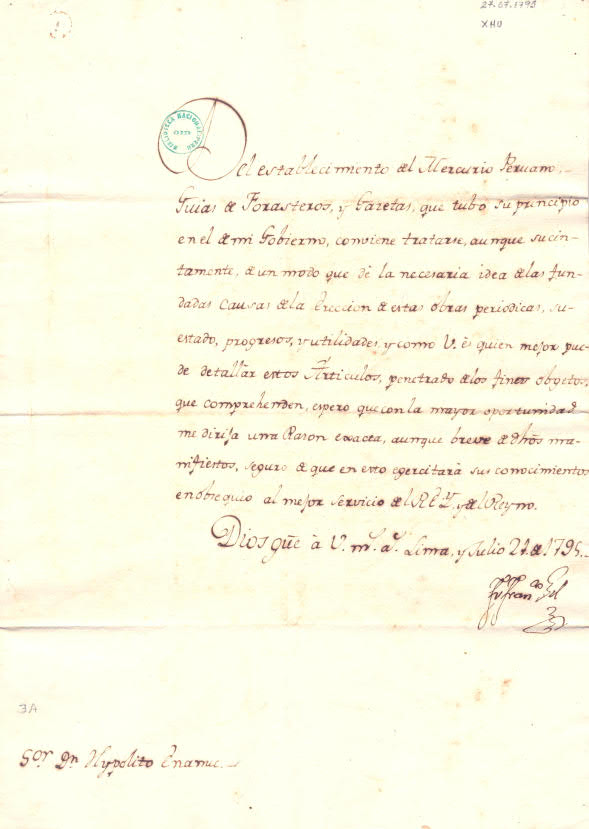 27.07.1795
XHU
BIBLIOTECA NACIONAL PERU
Del establecimiento del Mercurio Peruano,
Guias de Forasteros, y Gazetas, que tubo su principio
en el de mi Gobierno, conviene tratarse, aunque sucin-
tamente, de un modo que dé la necesaria idea de las fun-
dadas causas de la Ereccion de estas obras periodicas, su-
estado, progresos, y utilidades, y como V. es quien mejor pue-
de detallar estos Articulos, penetrado de los fines objetos,
que comprehenden, espero que con la mayor oportunidad
me dirija una Rason exacta, aunque breve de dhos ma-
nifiestos, seguro de que en esto egercitará sus conocimientos
en obsequio al mejor servicio del REY, y del Reyno.
Dios gũe à V. ms. as. Lima, y Julio 27 de 1795.
Fr Franco Gil
3A
Sor. Dn. Hypolito Unanue.